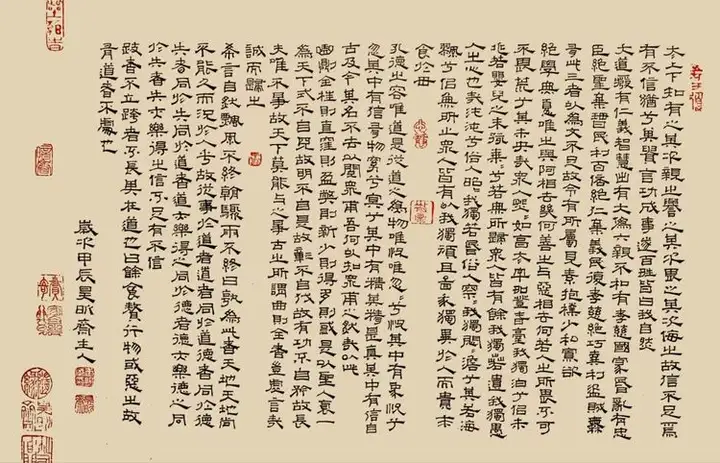 太上下知有之其次親之譽之其次畏之其次侮之故信不足焉
有不信猶兮其貴言功成事遂百姓皆曰我自然
大道廢有仁義智慧出有大偽六親不和有孝慈國家昏亂有忠
臣絕聖棄智民利百倍絕仁棄義民復孝慈絕巧棄利盜賊無
有此三者以為文不足故令有所屬見素抱樸少私寡欲
絕學無憂唯之與阿相去幾何善之與惡相去何若人之所畏不可
不畏荒兮其未央哉眾人熙=如享太牢如登春臺我獨泊兮其未
兆若嬰兒之未孩兮若無所歸眾人皆有餘我獨若遺我獨愚
人之心也哉沌沌兮俗人昭=我獨若昏俗人察=我獨悶=澹兮其若海
飂兮似無所止眾人皆有以我獨頑且鄙我獨異於人而貴求
食於母
孔德之容唯道是從道之為物唯恍唯惚=兮恍其中有象恍兮
惚其中有物窈兮冥兮其中有精其精甚真其中有信自
古及今其名不去以閱眾甫吾何以知眾甫之狀哉以此
曲則全枉則直窪則盈弊則新少則得多則惑是以聖人抱一
為天下式不自見故明不自是故彰不自伐故有功不自矜故長
夫唯不爭故天下莫能與之爭古之所謂曲則全者豈虛言哉
誠而歸之
希言自然飄風不終朝驟雨不終日孰為此者天地天地尚
不能久而況於人乎故從事於道者道者同於道德者同於德
失者同於失同於道者道亦樂得之同於德者德亦樂德之同
於失者失亦樂得之信不足有不信
跂者不立跨者不行其在道也曰餘食贅行物或惡之故
有道者不處也
歲次甲辰昊昕齋主人